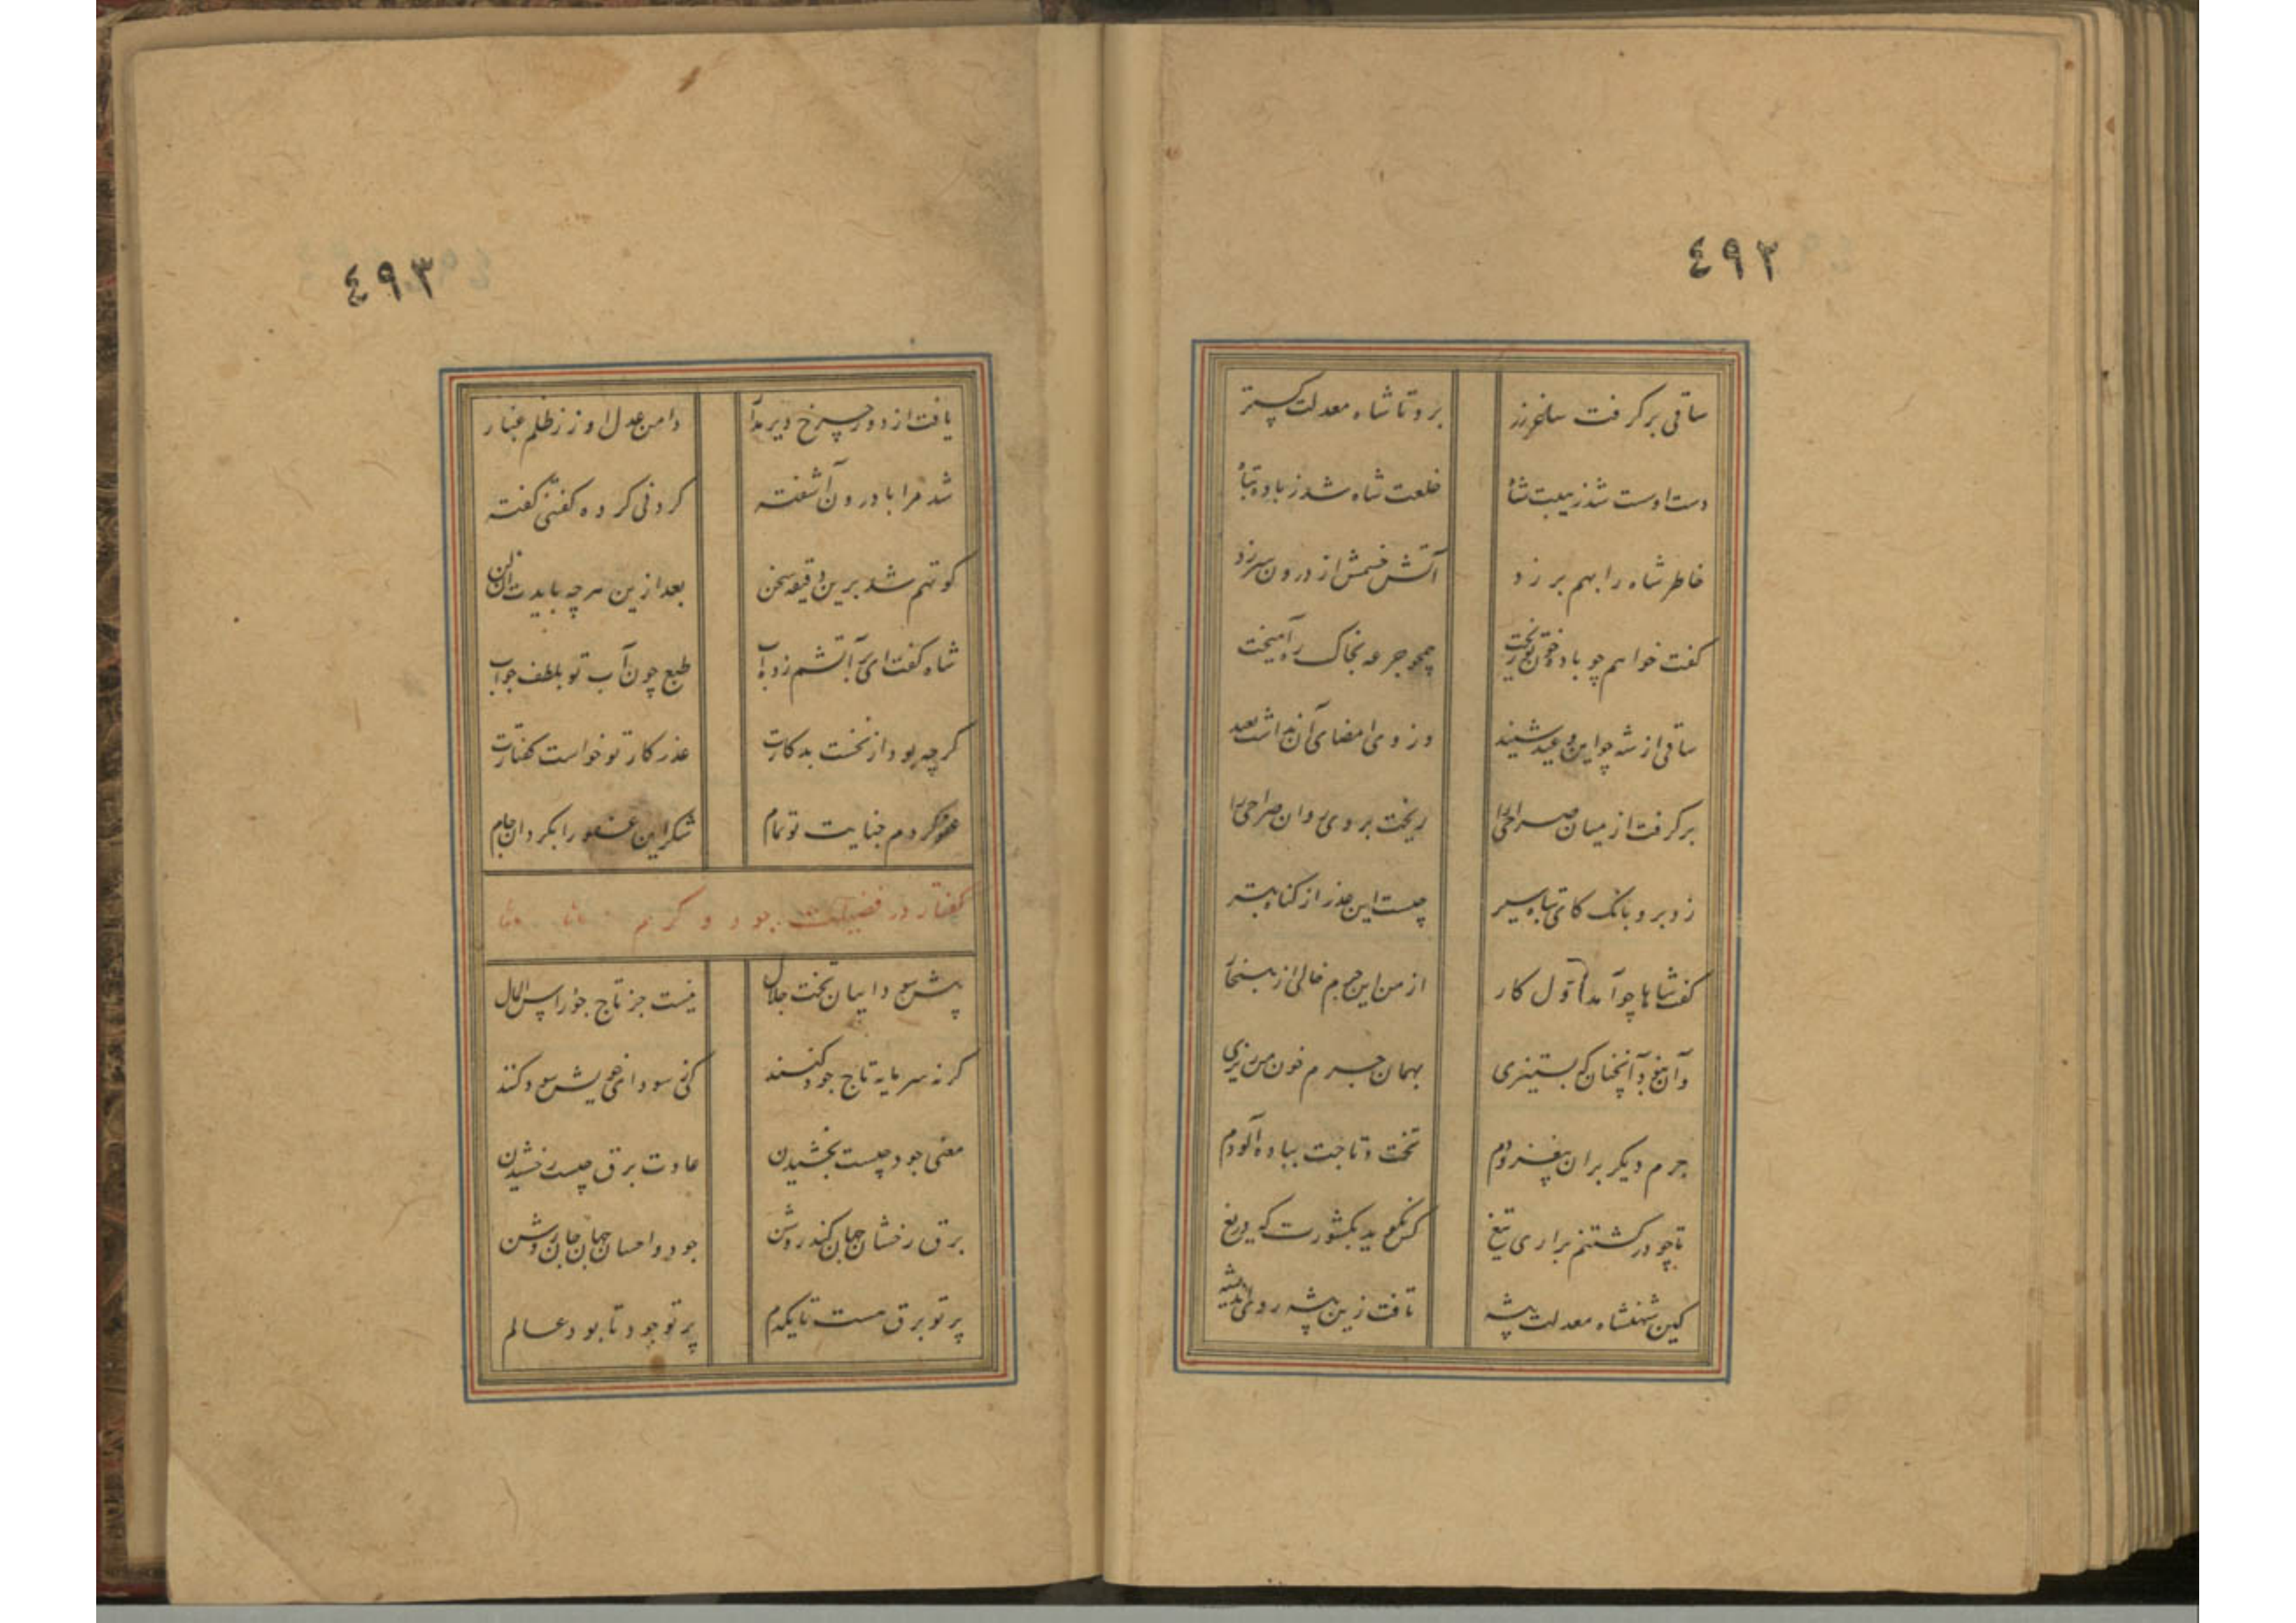 ٤٩٢
ساقی برگرفت ساغر زر برد تا شاه معدلت گستر
دست او سست شد ز هیبت شاه خلعت شاه شد ز باده تباه
خاطر شاه را بهم بر زد آتش خشمش از درون سر زد
گفت خواهم چو باده خونت ریخت همچو جرعه بخاک ره آمیخت
ساقی از شه چو این وعید شنید وز وی امضای آن نداشت بعید
برگرفت از میان صراحی را ریخت بر وی روان صراحی را
زد برو بانگ کای تباه سیر چیست این عذر از گناه بتر
گفت شاها چو آمد اول کار از من این جرم خالی از هنجار
وآن نبود آنچنان که بستیزی بهمان جرم خون من ریزی
جرم دیگر بران بیفزودم تخت و تاجت بباده آلودم
تا چو در کشتنم براری تیغ کس نگوید بکشورت که دریغ
کین شهنشاه معدلت پیشه تافت زین پیشه روی اندیشه
٤٩٣
یافت از دور چرخ دیر مدار دامن عدل او ز ظلم غبار
شد مرا با درون آشفته کردنی کرده گفتنی گفته
گو تهم شد برین دقیقه سخن بعد ازین هر چه بایدت آن کن
شاه گفت ای بر آتشم زده آب طبع چون آب تو بلطف جواب
گرچه بود از نخست بد کارت عذر کار تو خواست گفتارت
عفو کردم جنایت تو تمام شکر این عفو را بگردان جام
گفتار در فضیلت جود و کرم
پیش سوداییان تخت جلال نیست جز تاج جود راس المال
گر نه سرمایه تاج جود کنند کی ز سودای خویش سود کنند
معنی جود چیست بخشیدن عادت برق چیست رخشیدن
برق رخشان جهان کند روشن جود و احسان جهان جان روشن
پرتو برق هست تا یکدم پرتو جود تا بود عالم